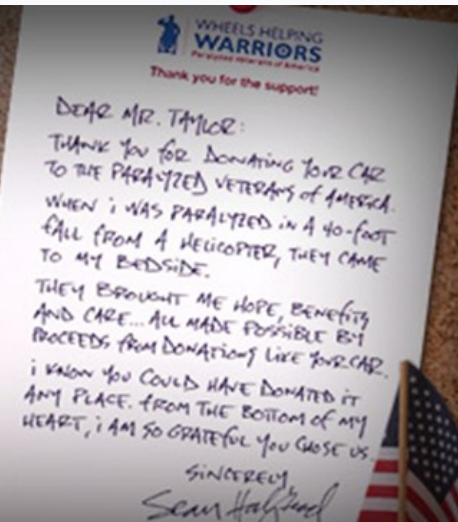 WHEELS HELPING
WARRIORS
Paralyzed Veterans of America
Thank you for the support!
DEAR MR. TAYLOR:
THANK YOU FOR DONATING YOUR CAR
TO THE PARALYZED VETERANS of AMERICA.
WHEN i WAS PARALYZED IN A 40-FOOT
FALL FROM A HELICOPTER, THEY CAME
TO MY BEDSIDE.
THEY BROUGHT ME HOPE, BENEFITS
AND CARE... ALL MADE POSSIBLE BY
PROCEEDS FROM DONATIONS LIKE YOUR CAR.
i KNOW YOU COULD HAVE DONATED IT
ANY PLACE. FROM THE BOTTOM OF MY
HEART, i AM SO GRATEFUL YOU CHOSE US.
SINCERELY,
Sean